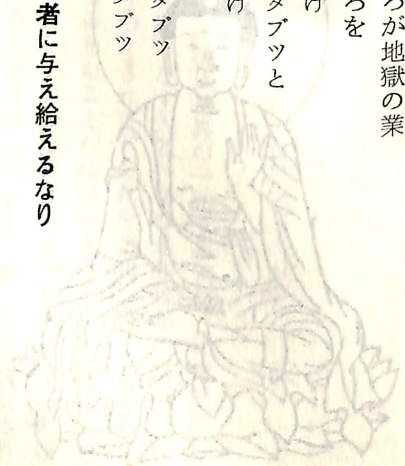 ろが地獄の業
ろを
け
タブツと
け
タブツ
タブツ
者に与え給えるなり